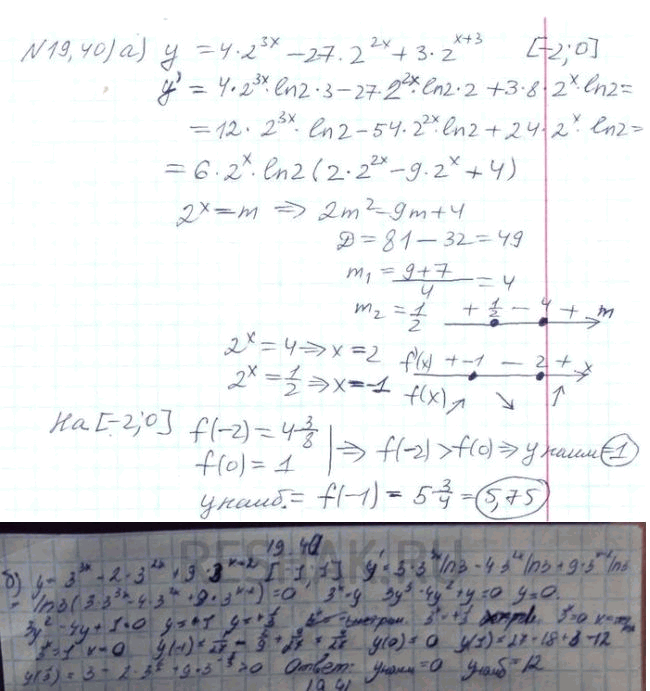 N19,40) а) y = 4·2^{3x} − 27·2^{2x} + 3·2^{x+3} [−2;0]
y' = 4·2^{3x}·ln2·3 − 27·2^{2x}·ln2·2 + 3·8·2^x·ln2=
= 12·2^{3x}·ln2 − 54·2^{2x}·ln2 + 24·2^x·ln2=
= 6·2^x·ln2 (2·2^{2x} − 9·2^x + 4)
2^x = m ⇒ 2m² − 9m + 4
D = 81 − 32 = 49
m₁ = (9+7)/4 = 4
m₂ = 1/2 + 1/2 − 4 + m
2^x = 4 ⇒ x = 2 f'(x) + −1 − 2 + x
2^x = 1/2 ⇒ x = −1 f(x) ↗ ↘ ↑
На [−2;0] f(−2) = 4 3/8
f(0) = 1 ⇒ f(−2) > f(0) ⇒ y наим = 1
y наиб. = f(−1) = 5 3/4 = 5,75
RESHAK.RU
19.40
б) y = 3^{3x} − 2·3^{2x} + 9·3^{x−2} [−1;1] y' = 3·3^{3x} ln3 − 4·3^{2x} ln3 + 9·3^{x−2} ln3
= ln3(3·3^{3x} − 4·3^{2x} + 9·3^{x−2}) = 0 3^x = y 3y³ − 4y² + y = 0 y = 0
3y² − 4y + 1 = 0
3^x = 1 x = 0 y(0) = 0 y(1) = 27 − 18 + 3 = 12
Ответ: y наим = 0 y наиб = 12
19.41